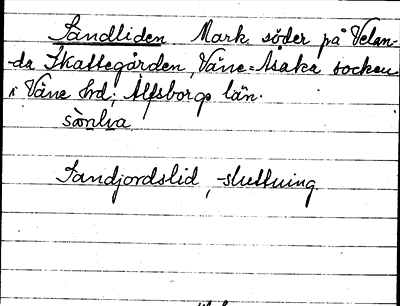 Sandliden Mark söder på Velan-
da Skattegården, Väne-Åsaka socken
i Väne hd; Älfsborgs län.
sànlia
Sandjordslid, -sluttning.